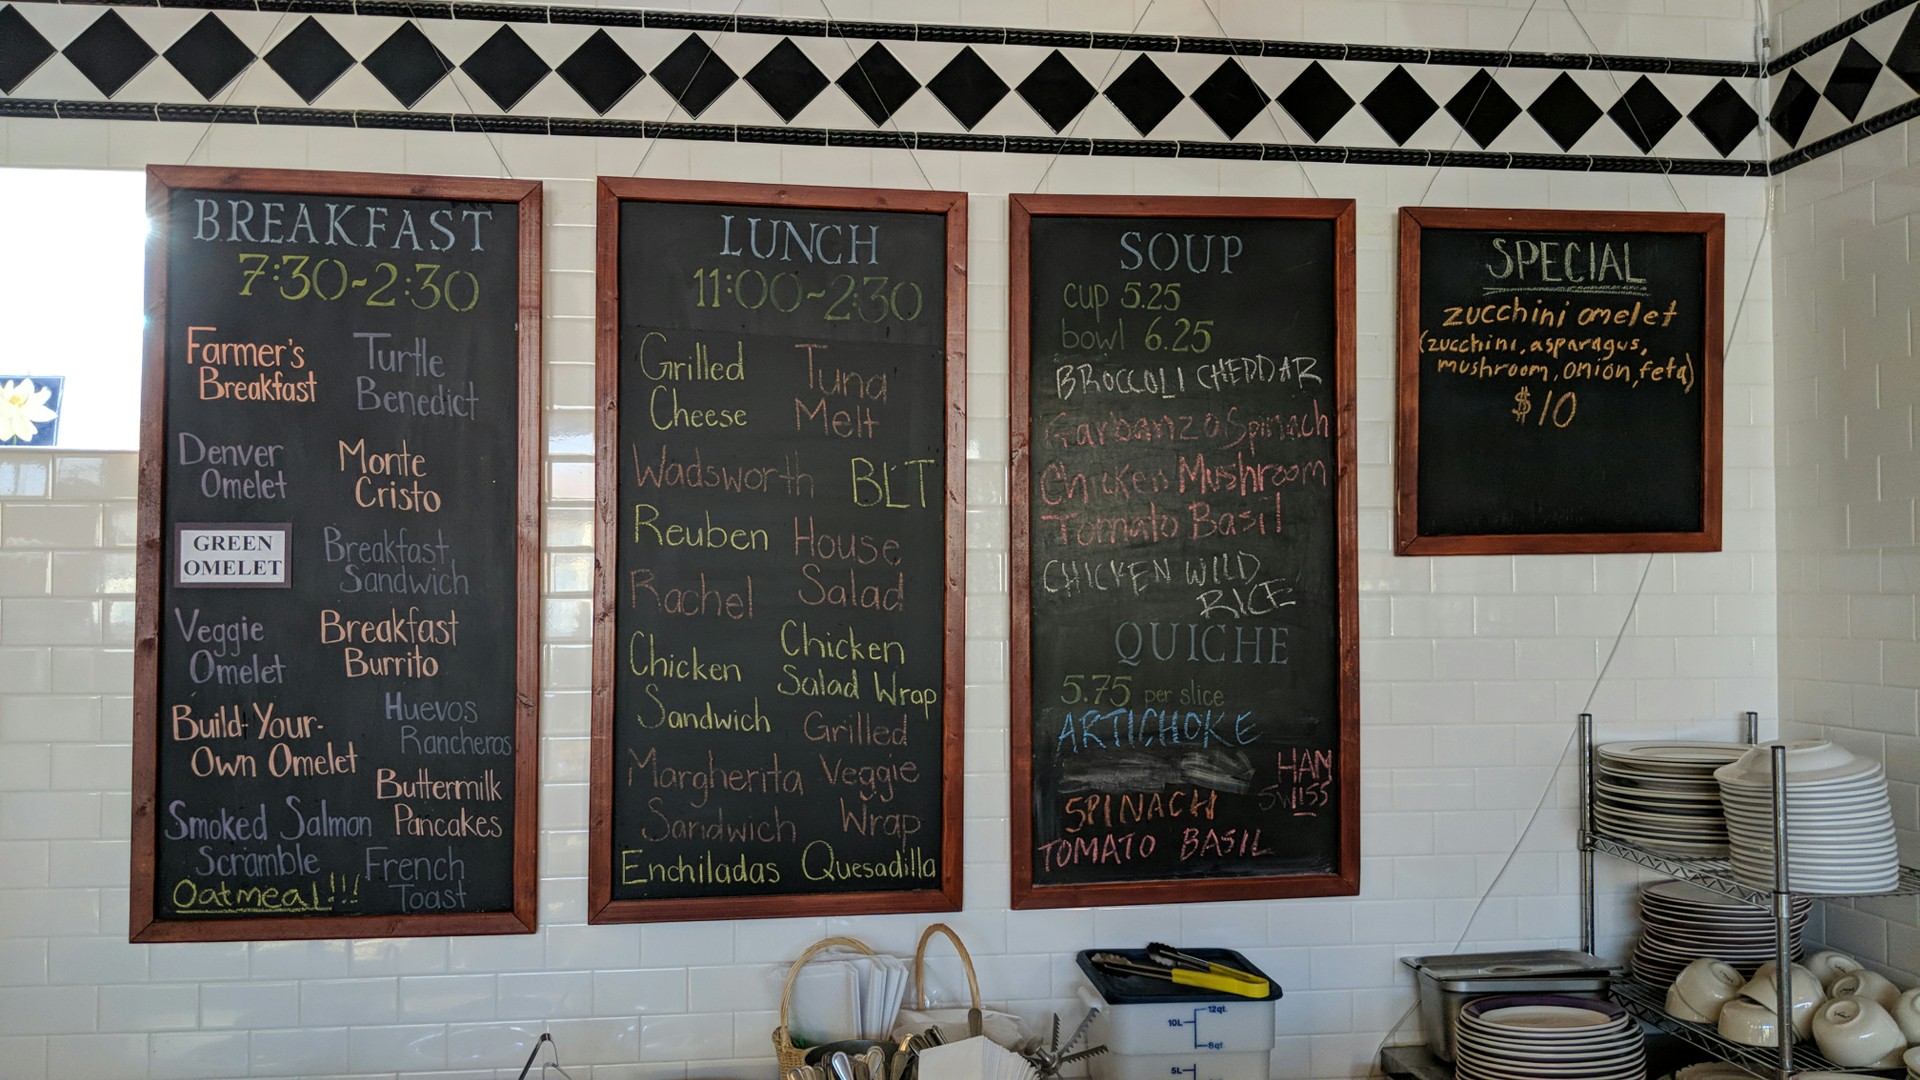 BREAKFAST
7:30~2:30
Farmer's
Breakfast
Denver
Omelet
GREEN
OMELET
Veggie
Omelet
Build-Your-
Own Omelet
Smoked Salmon
Scramble
Oatmeal!!!
Turtle
Benedict
Monte
Cristo
Breakfast
Sandwich
Breakfast
Burrito
Huevos
Rancheros
Buttermilk
Pancakes
French
Toast
LUNCH
11:00~2:30
Grilled
Cheese
Wadsworth
Reuben
Rachel
Chicken
Sandwich
Margherita
Sandwich
Enchiladas
Tuna
Melt
BLT
House
Salad
Chicken
Salad Wrap
Grilled
Veggie
Wrap
Quesadilla
SOUP
cup 5.25
bowl 6.25
BROCCOLI CHEDDAR
Garbanzo Spinach
Chicken Mushroom
Tomato Basil
CHICKEN WILD
RICE
QUICHE
5.75 per slice
ARTICHOKE
HAM
SWISS
SPINACH
TOMATO BASIL
SPECIAL
zucchini omelet
(zucchini, asparagus,
mushroom, onion, feta)
$10
12qt.
10L
8qt.
5L